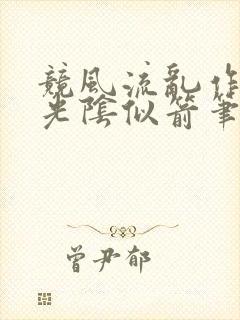 競風流亂作
光陰似箭筆
曾尹郁